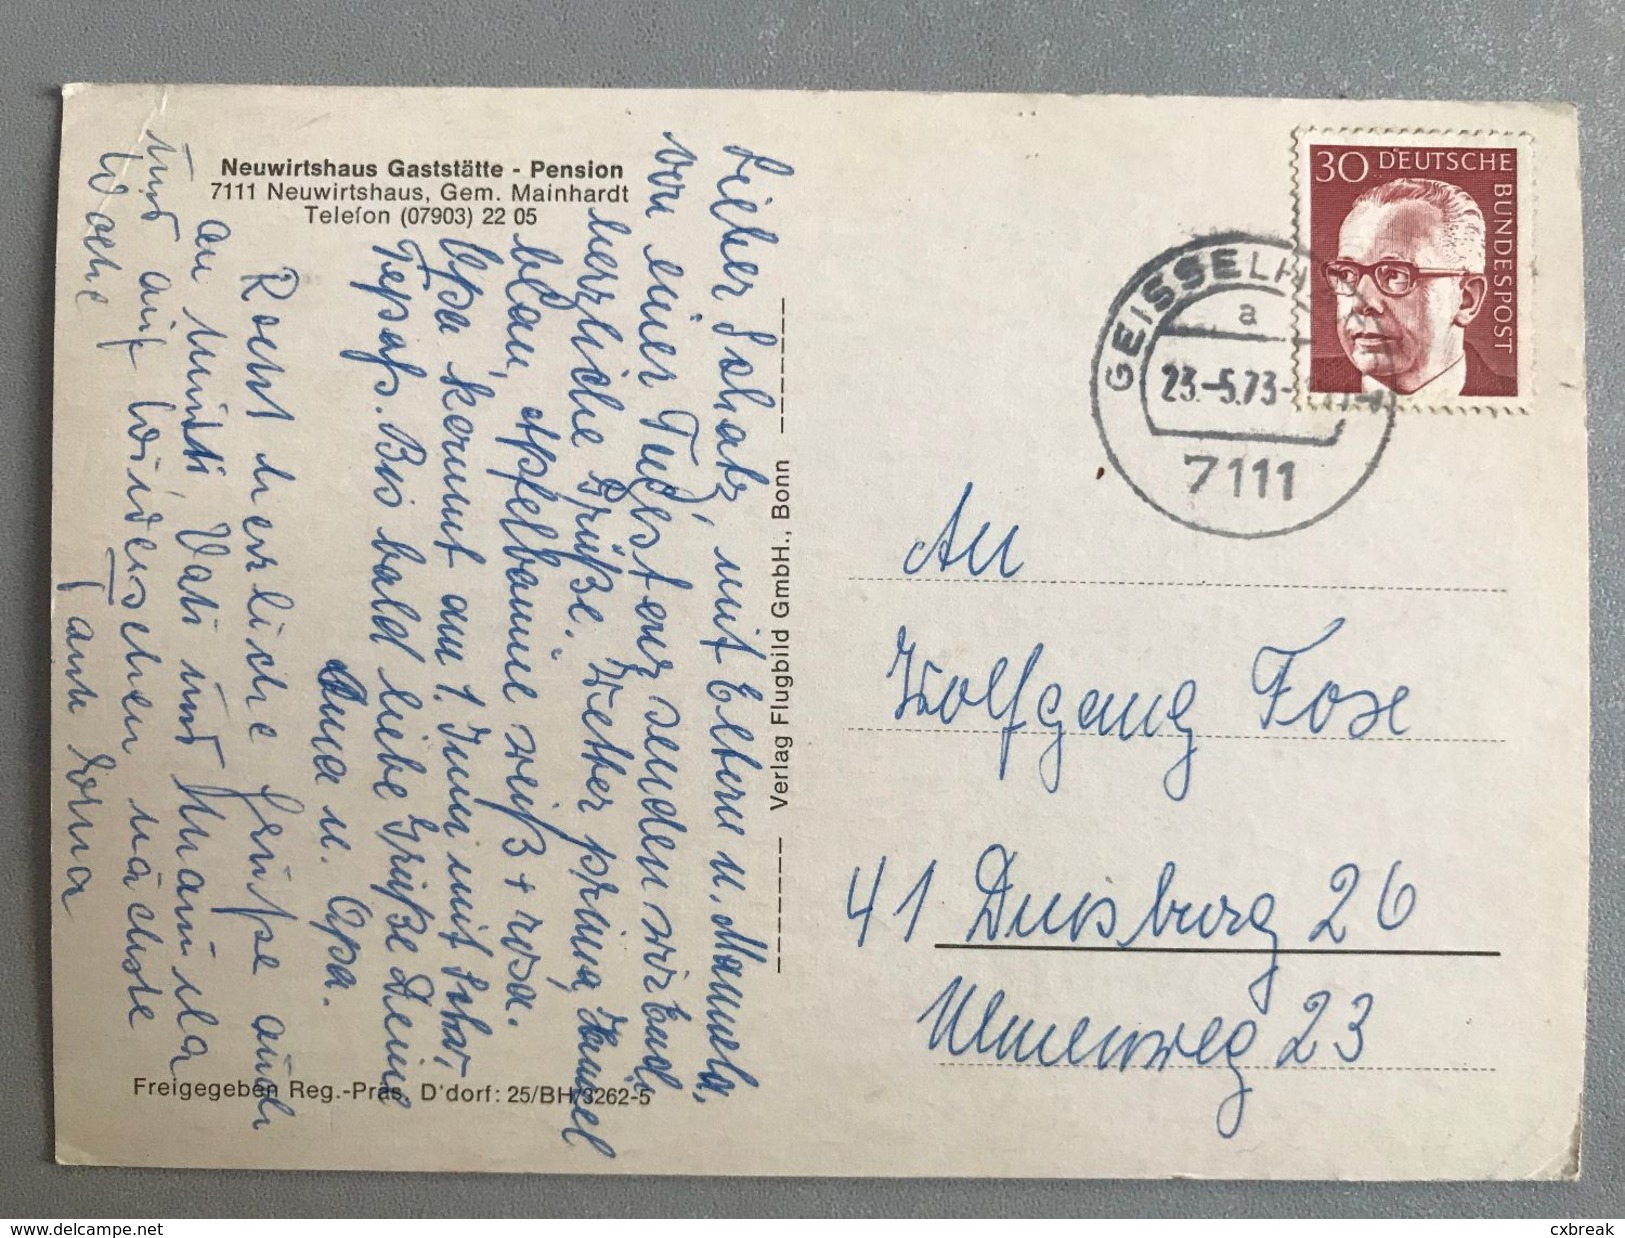 Neuwirtshaus Gaststätte - Pension
7111 Neuwirtshaus, Gem. Mainhardt
Telefon (07903) 22 05
Lieber Schatz, mit Eltern u. Manuela,
von einer senden wir Euch
herzliche Grüße. Wetter prima, Himmel
blau, Apfelbäume weiß + rosa.
Opa kommt am 1. Juni mit
Bis bald liebe Grüße Deine
Oma u. Opa.
Recht herzliche Grüße auch
an Mutti, Vati und Manuela
und auf Wiedersehen nächste
Woche Tante Erna
Verlag Flugbild GmbH., Bonn
Freigegeben Reg.-Präs. D'dorf: 25/BH/3262-5
30 DEUTSCHE BUNDESPOST
GEISSELH
a
23.-5.73
7111
An
Wolfgang Foxe
41 Duisburg 26
Ulmenweg 23
www.delcampe.net
cxbreak